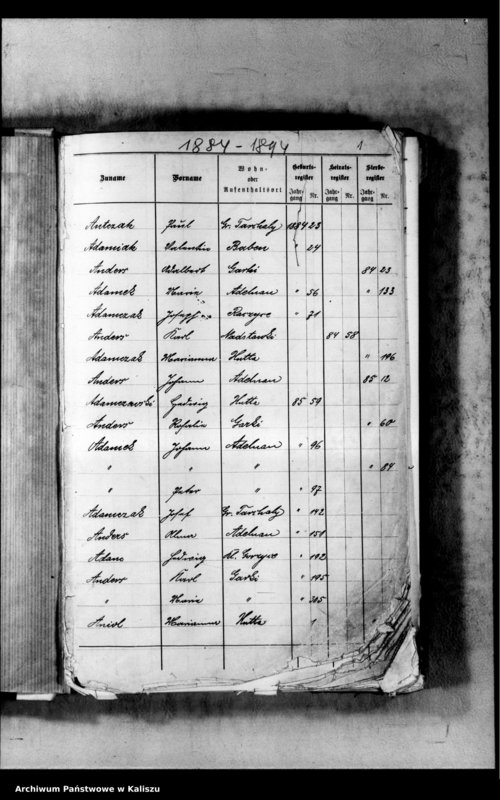 1884 - 1894
1
Zuname Vorname Wohn- oder Aufenthaltsort Geburts-register Heirats-register Sterbe-register
Jahr-gang Nr. Jahr-gang Nr. Jahr-gang Nr.
Antczak Paul Gr. Tarchaly 1884 23
Adamiak Valentin Baben " 24
Anders Adalbert Garki 84 23
Adamek Maria Adelnau " 56 " 133
Adamczak Josepha " 71
Anders Karl 84 58
Adamczak Marianna Hutta " 196
Anders Johann Adelnau 85 12
Adamczewski Hedwig Hutta 85 59
Anders Garki " 60
Adamek Johann Adelnau " 96
" " " " 84
" Peter " " 97
Adamczak Josef Gr. Tarchaly " 142
Anders Adelnau " 151
Adam Hedwig " 192
Anders Karl Garki " 195
" Maria " " 305
Aniol Marianna Hutta 1
Archiwum Państwowe w Kaliszu